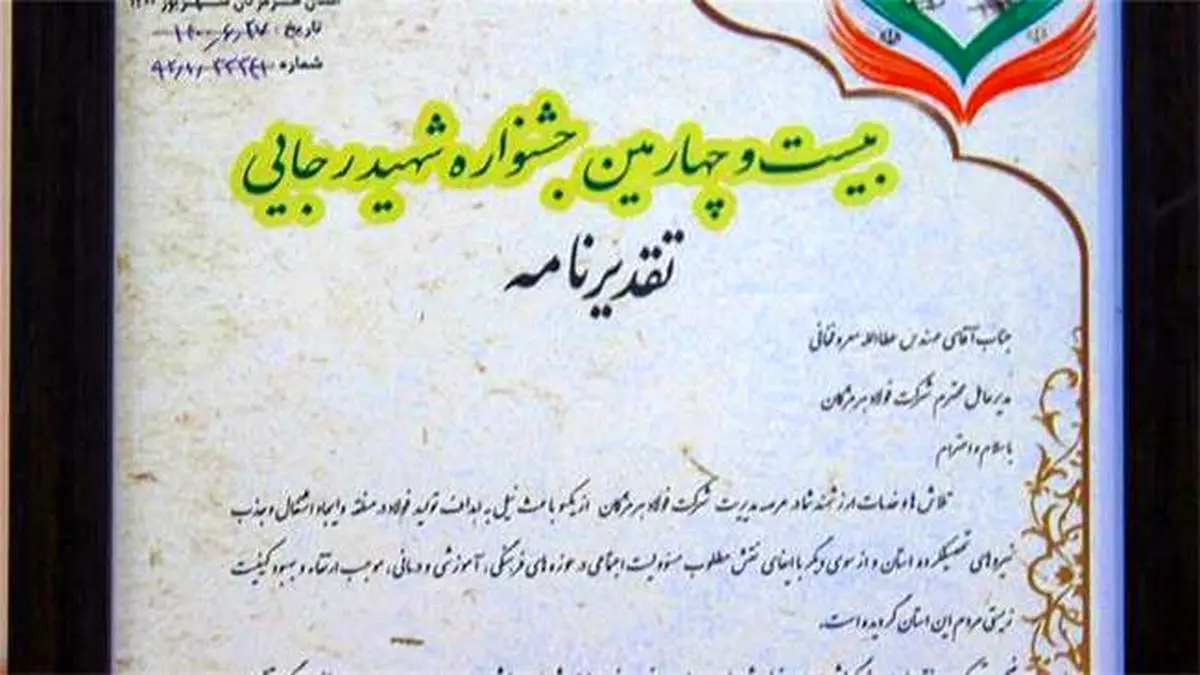 استان هرمزگان شهریور ۱۴۰۰
تاریخ : ۱۴۰۰/۶/۲۷
شماره
بیست و چهارمین جشنواره شهید رجایی
تقدیرنامه
جناب آقای مهندس عطاالله معروفخانی
مدیرعامل محترم شرکت فولاد هرمزگان
با سلام و احترام
تلاش ها و خدمات ارزشمند شما در عرصه مدیریت شرکت فولاد هرمزگان از یکسو باعث نیل به اهداف تولید فولاد در منطقه و ایجاد اشتغال و جذب
نیروهای تحصیلکرده استان و از سوی دیگر با ایفای نقش مطلوب مسؤولیت اجتماعی در حوزه های فرهنگی، آموزشی و درمانی، موجب ارتقاء و بهبود کیفیت
زیستی مردم این استان گردیده است.